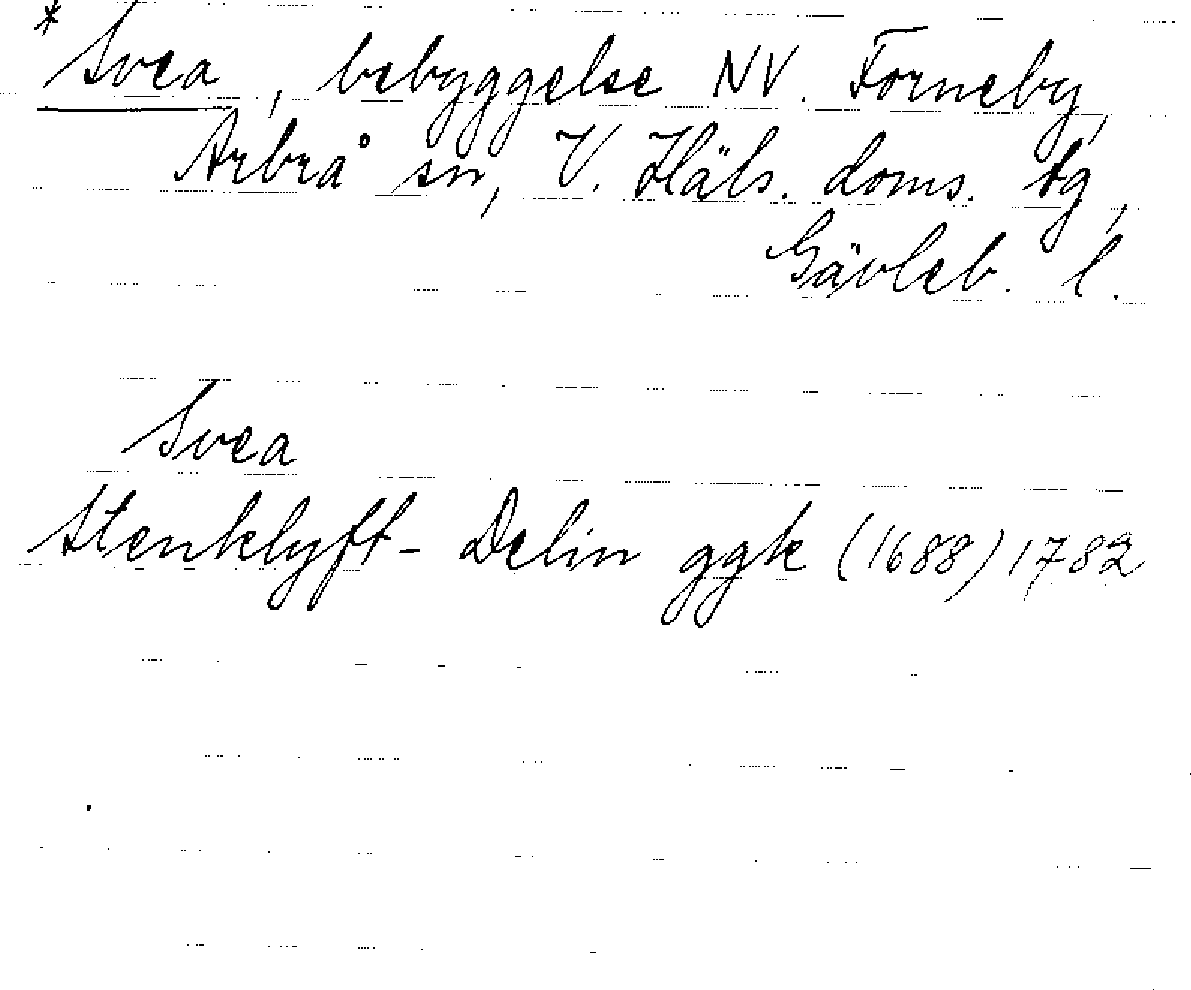 * Svea, bebyggelse NV. Forneby,
Arbrå sn, V. Häls. doms. tg,
Gävleb. l.
Svea
Stenklyft - Delin ggk (1688) 1782